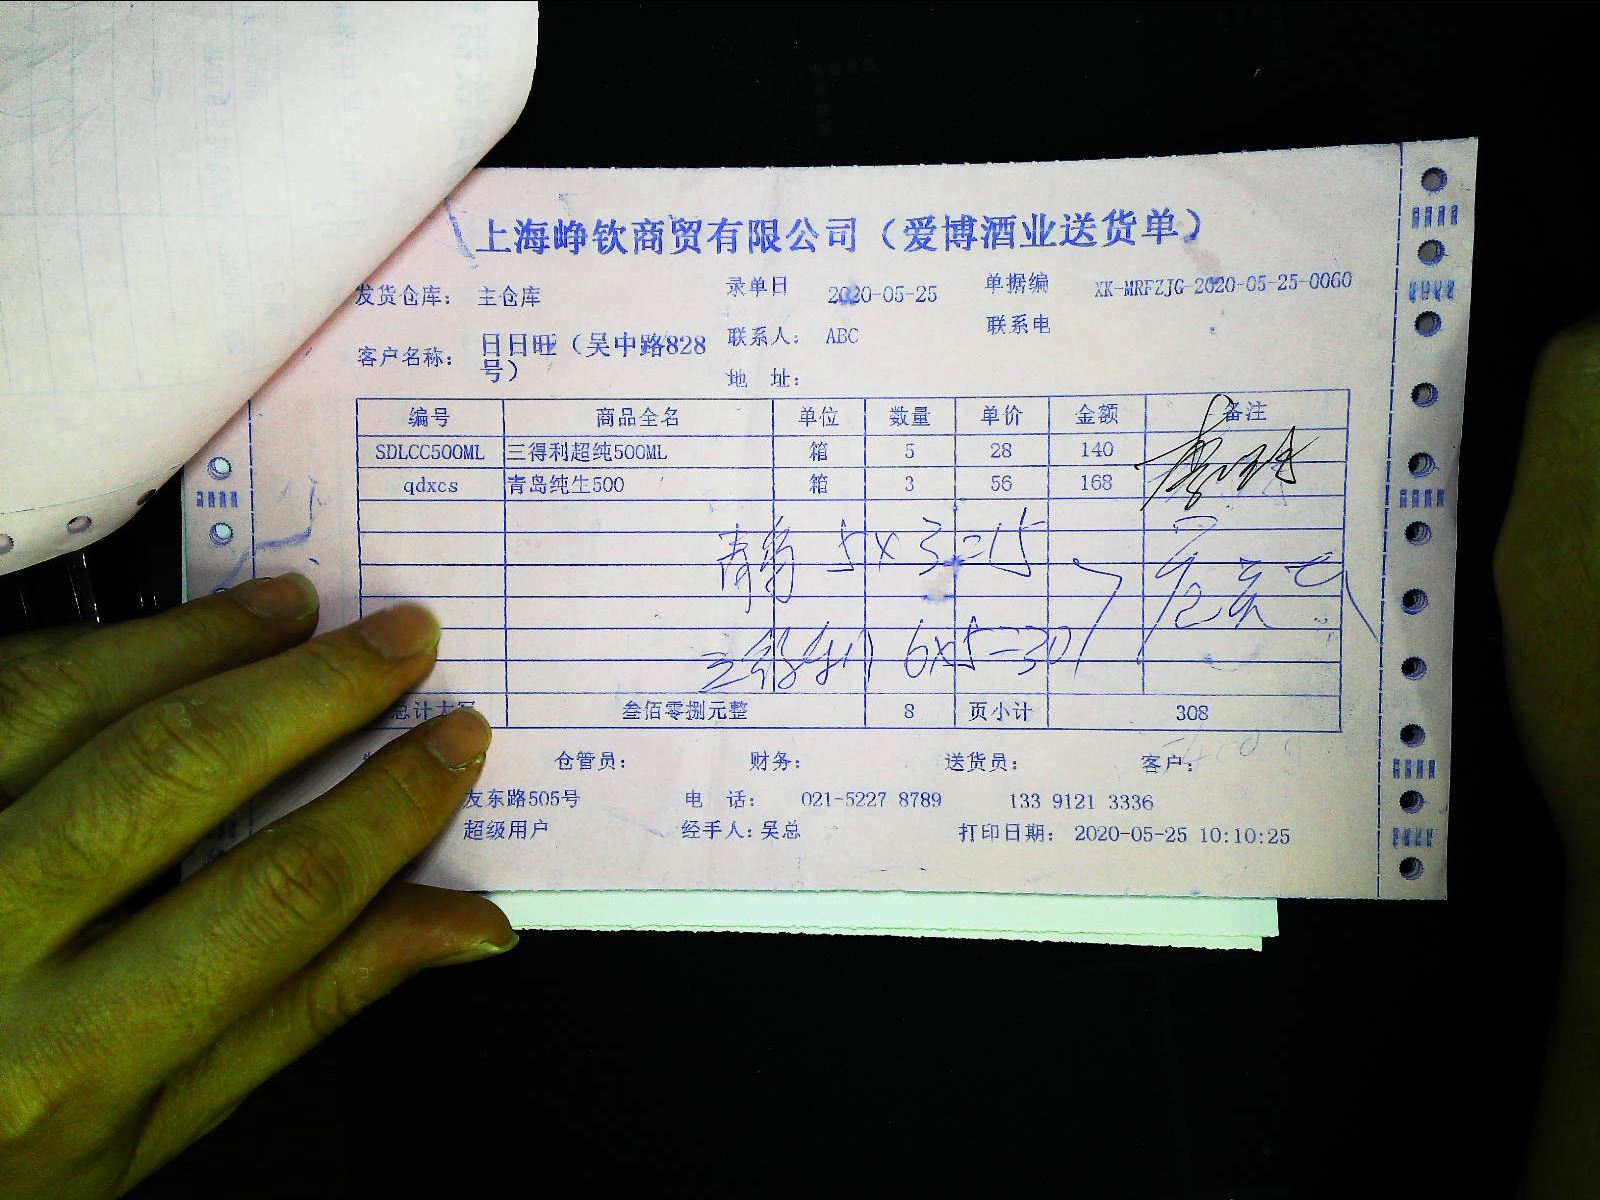 上海峥钦商贸有限公司（爱博酒业送货单）
发货仓库： 主仓库 录单日 2020-05-25 单据编 XK-MRFZJG-2020-05-25-0060
客户名称： 日日旺（吴中路828号） 联系人： ABC 联系电
地 址：
编号 商品全名 单位 数量 单价 金额 备注
SDLCC500ML 三得利超纯500ML 箱 5 28 140
qdxcs 青岛纯生500 箱 3 56 168
青岛 5×3=15
三得利 6×5=30
总计大写 叁佰零捌元整 8 页小计 308
仓管员： 财务： 送货员： 客户：
友东路505号 电 话： 021-5227 8789 133 9121 3336
超级用户 经手人：吴总 打印日期： 2020-05-25 10:10:25